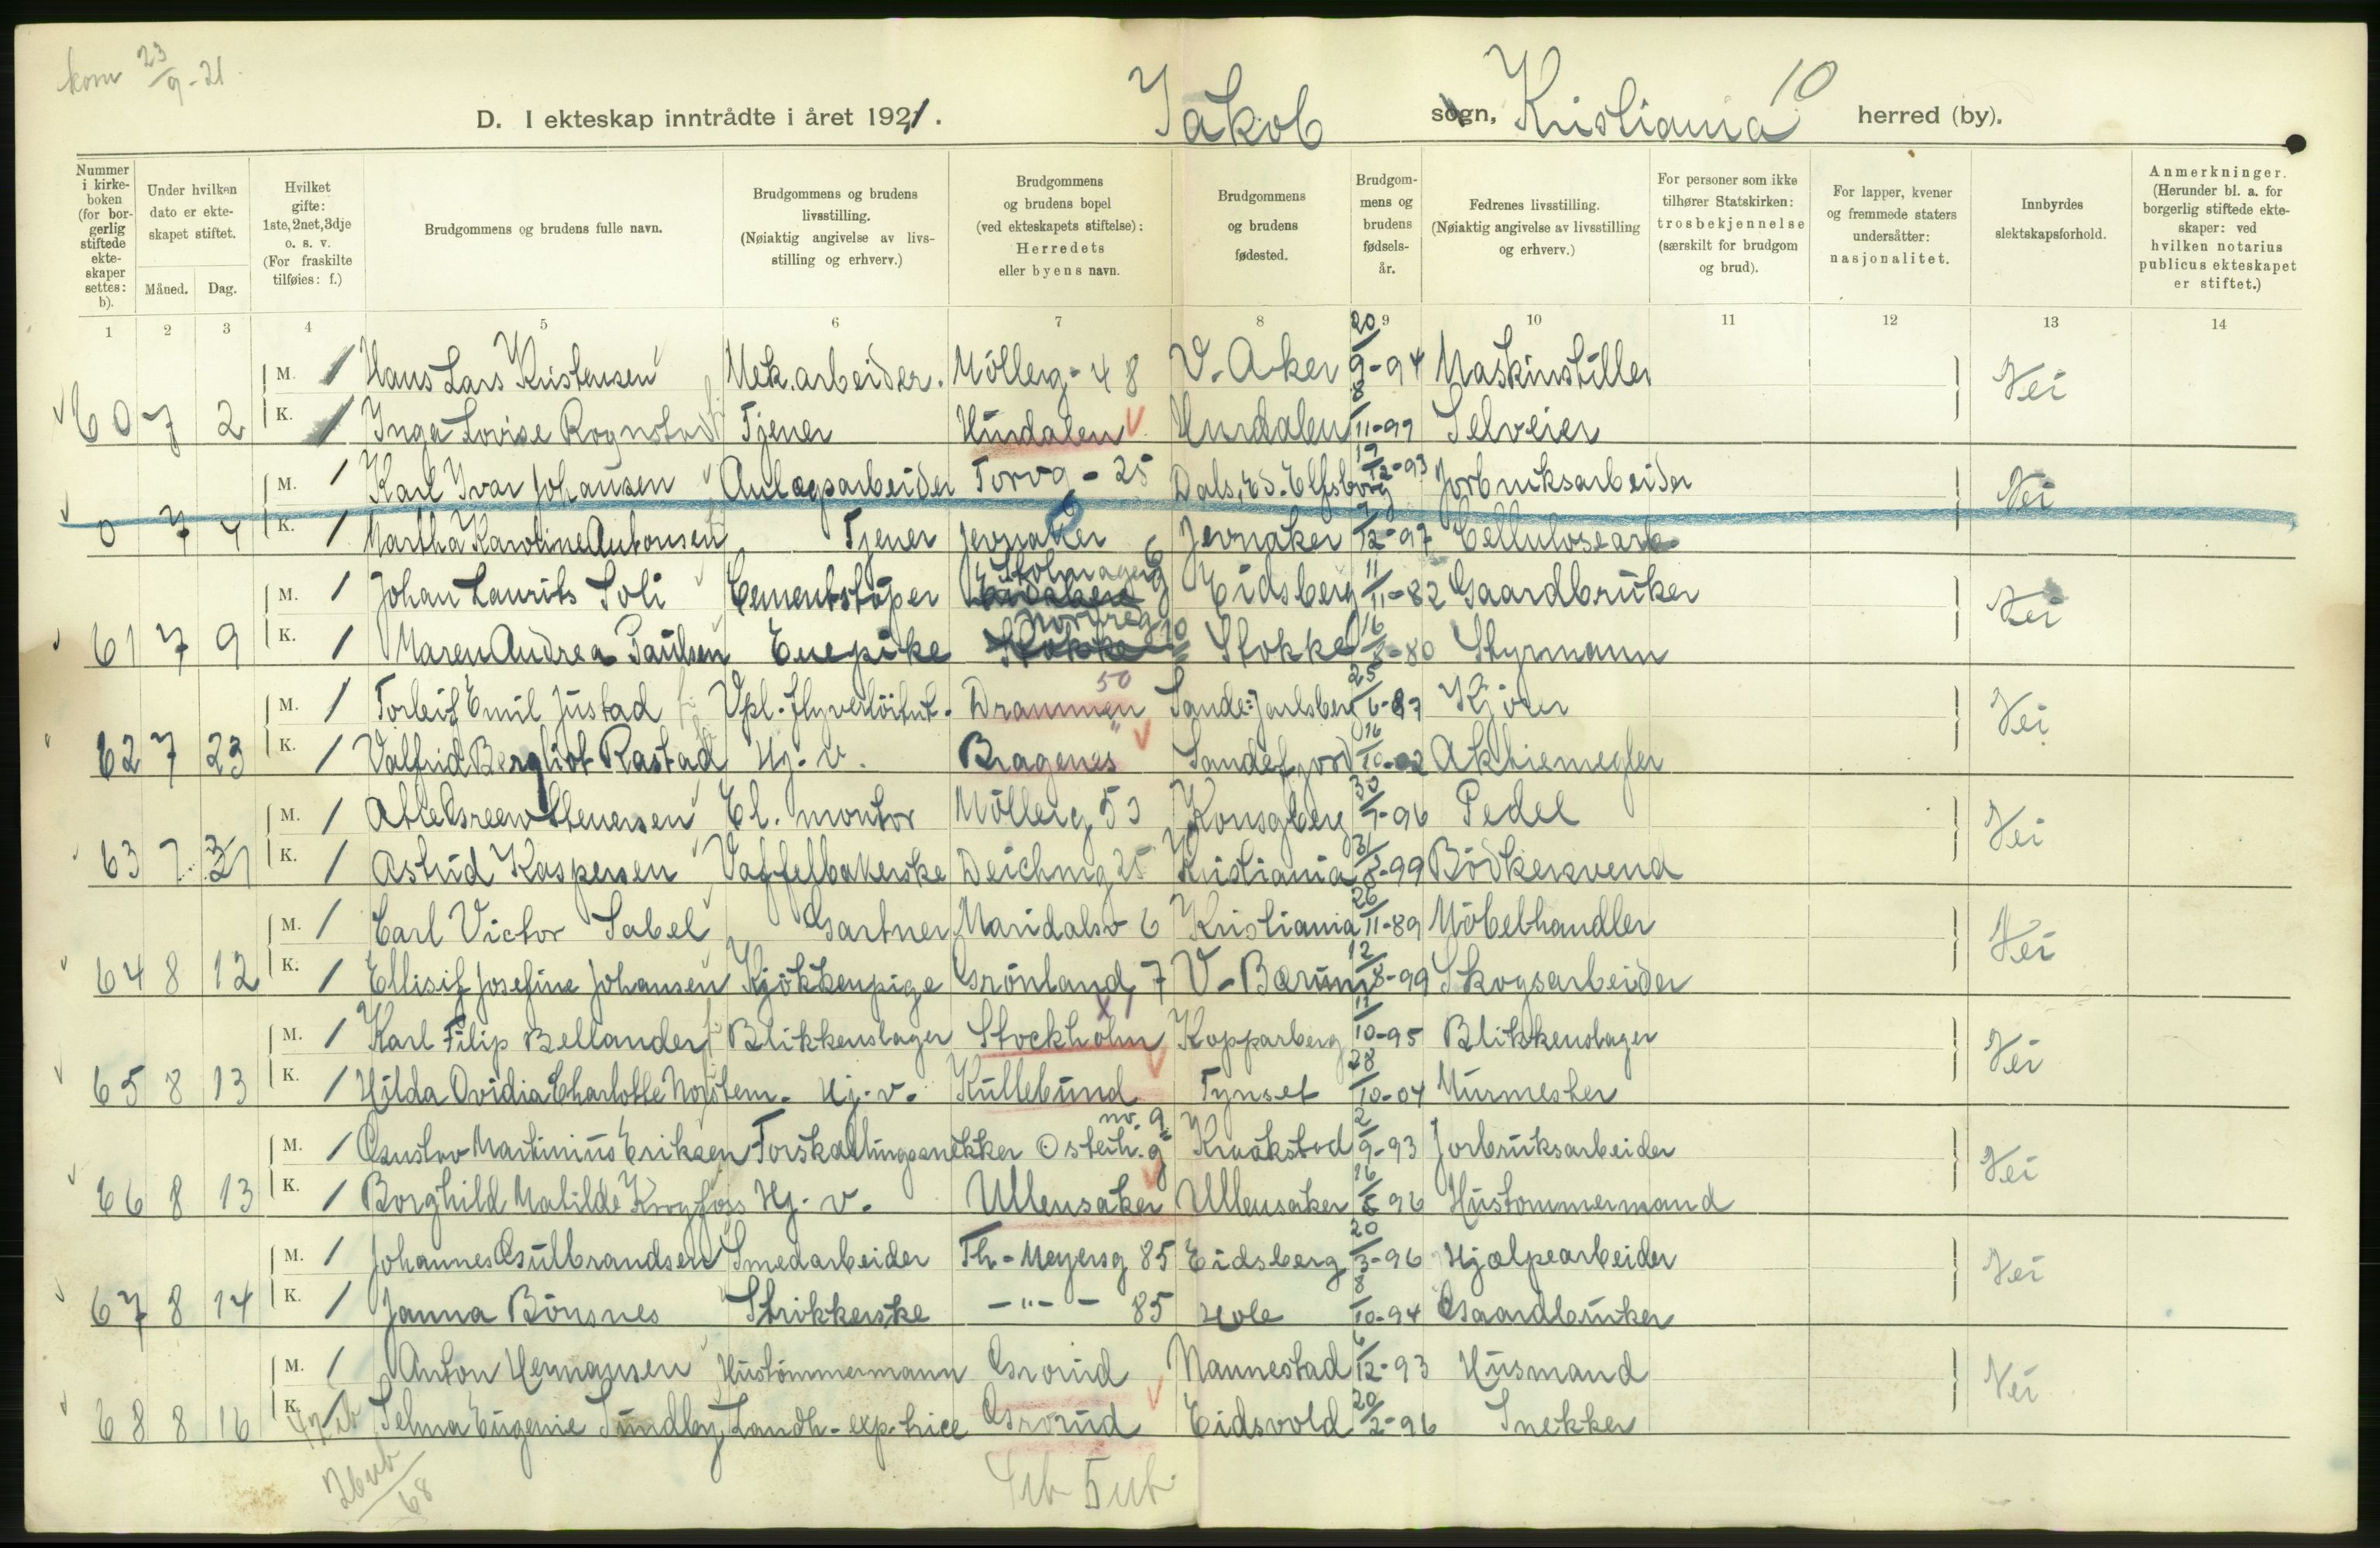 kom 23/9-21
D. I ekteskap inntrådte i året 1921. Jakob sogn, Kristiania 10 herred (by).
Nummer i kirkeboken (for borgerlig stiftede ekteskaper settes: b).
Under hvilken dato er ekteskapet stiftet.
Måned. Dag.
Hvilket gifte: 1ste, 2net, 3dje o. s. v. (For fraskilte tilføies: f.)
Brudgommens og brudens fulle navn.
Brudgommens og brudens livsstilling. (Nøiaktig angivelse av livsstilling og erhverv.)
Brudgommens og brudens bopel (ved ekteskapets stiftelse): Herredets eller byens navn.
Brudgommens og brudens fødested.
Brudgommens og brudens fødselsår.
Fedrenes livsstilling. (Nøiaktig angivelse av livsstilling og erhverv.)
For personer som ikke tilhører Statskirken: trosbekjennelse (særskilt for brudgom og brud).
For lapper, kvener og fremmede staters undersåtter: nasjonalitet.
Innbyrdes slektskapsforhold.
Anmerkninger. (Herunder bl. a. for borgerlig stiftede ekteskaper: ved hvilken notarius publicus ekteskapet er stiftet.)
1 2 3 4 5 6 7 8 9 10 11 12 13 14
M. 1 Hans Lars Kristensen Mek. arbeider. Möllerg - 48 V. Aker 20/9-94 Maskinstiller Nei
60 7 2 K. 1 Inga Lovise Rognstad Tjener Hurdalen Hurdalen 8/11-99 Selveier
M. 1 Karl Ivar Johansen Anlægsarbeider Torvg - 25 Dals, Ed. Elfsborg 19/12-93 Jorbruksarbeider Nei
0 7 4 K. 1 Martha Karoline Antonsen Tjener Jevnaker Jevnaker /12-97 Cellulosearb.
M. 1 Johan Laurits Soli Cementstöper Eidsberg Eidsberg 11/11-82 Gaardbruker Nei
61 7 9 K. 1 Maren Andrea Paulsen Enepike Stokke Stokke 16/8-80 Styrmann
M. 1 Torleif Emil Justad Vpl. flyverlöitnt. Drammen 50 Sande: Jarlsberg 25/6-97 Kjörer Nei
62 7 23 K. 1 Valfrid Bergliot Rastad Hj. v. Bragenes Sandefjord 16/10-02 Aktiemegler
M. 1 Atle Greew Stenersen El. montör Möllerg 53 Konsgberg 30/7-96 Pedel Nei
63 7 31 K. 1 Astrid Kaspersen Vaffelbakerske Deichmg 25 Kristiania 31/8-99 Bödkersvend
M. 1 Carl Victor Sabel Gartner Maridalsv 6 Kristiania 26/11-89 Möbelhandler Nei
64 8 12 K. 1 Ellisif Josefine Johansen Kjökkenpige Grönland 7 V. Bærum 12/8-99 Skogsarbeider
M. 1 Karl Filip Bellander Blikkenslager Stockholm Kopparberg 17/10-95 Blikkenslager Nei
65 8 13 K. 1 Hilda Ovidia Charlotte Norstem. Hj. v. Kullebund Tynset 28/10-04 Murmester
M. 1 Gustav Martinius Eriksen Forskallingssnekker Kraakstad 2/9-93 Jorbruksarbeider Nei
66 8 13 K. 1 Borghild Matilde Krogfoss Hj. v. Ullensaker Ullensaker 16/8 96 Hustommermand
M. 1 Johannes Gulbrandsen Smedarbeider Th. Meyersg 85 Eidsberg 20/3-96 Hjælpearbeider Nei
67 8 14 K. 1 Janna Bönsnes Strikkerske - " - 85 Hole 8/10-94 Gaardbruker
M. 1 Anton Hermansen Hustömmermann Grorud Nannestad 6/12-93 Husmand Nei
68 8 16 K. 1 Selma Eugenie Sundby Landh. exp. trice Grorud Eidsvold 20/2-96 Snekker
26 ub/68
4 ub 5 ub